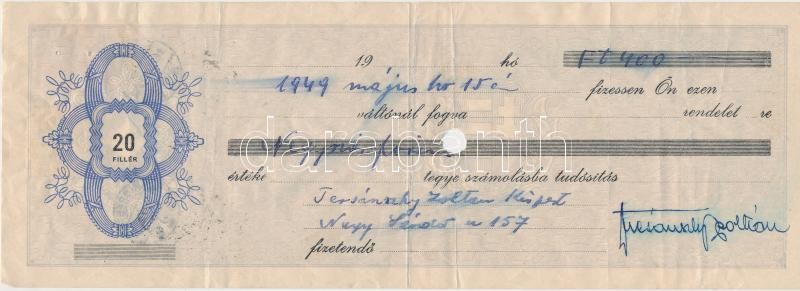 19 hó Ft 400
1949 május hó 15 én fizessen Ön ezen
váltónál fogva rendelet re
darabanth
20
FILLÉR
értéke tegye számolásba tudósítás
Tersánszky Zoltán Kispest
Nagy Sándor u 157
fizetendő
Tersánszky Zoltán